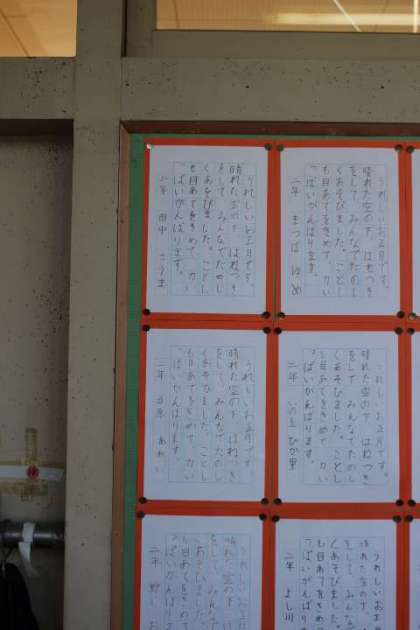 うれしいお正月です。
晴れた空の下 はねつき
をして みんなでたのし
くあそびました。ことし
も目あてをきめて 力い
っぱいがんばります。
二年 まつば ゆめ
うれしいお正月です。
晴れた空の下 はねつき
をして みんなでたのし
くあそびました。ことし
も目あてをきめて 力い
っぱいがんばります。
二年 田中 こうま
うれしいお正月です
晴れた空の下 はねつき
をして みんなでたのし
くあそびました。ことし
も目あてをきめて 力い
っぱいがんばります。
二年
うれしいお正月です
晴れた空の下 はねつき
をして みんなでたのし
くあそびました。ことし
も目あてをきめて 力い
っぱいがんばります
二年
うれしいお正
晴れた空の下
をして みんな
くあそびました
も目あてをきめ
っぱいがんばり
二年 よし川
うれしいお正月
晴れた空の下 は
をして みんな
くあそびました
も目あてをきめて
っぱいがんば
二年 野